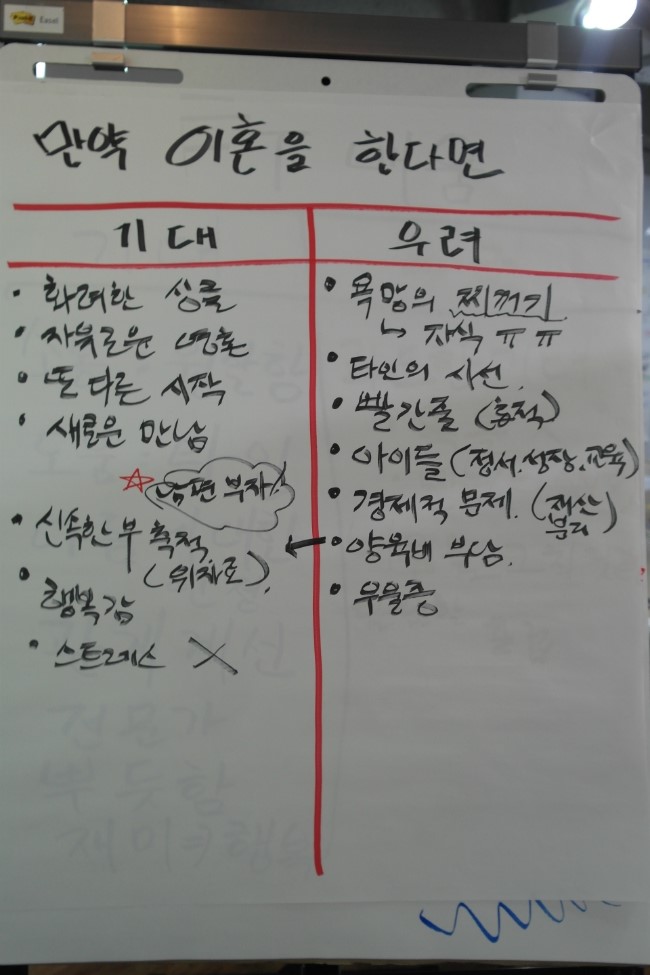 만약 이혼을 한다면
기대
• 화려한 싱글
• 자유로운 영혼
• 또 다른 시작
• 새로운 만남
☆ 남편 부자!
• 신속한 부 축적
(위자료).
• 행복감
• 스트레스 X
우려
• 욕망의 찌꺼기
↳ 자식 ㅠㅠ
• 타인의 시선.
• 빨간줄 (호적)
• 아이들 (정서.성장.교육)
• 경제적 문제. (재산
분리)
← • 양육비 부담.
• 우울증
전문가
뿌듯함